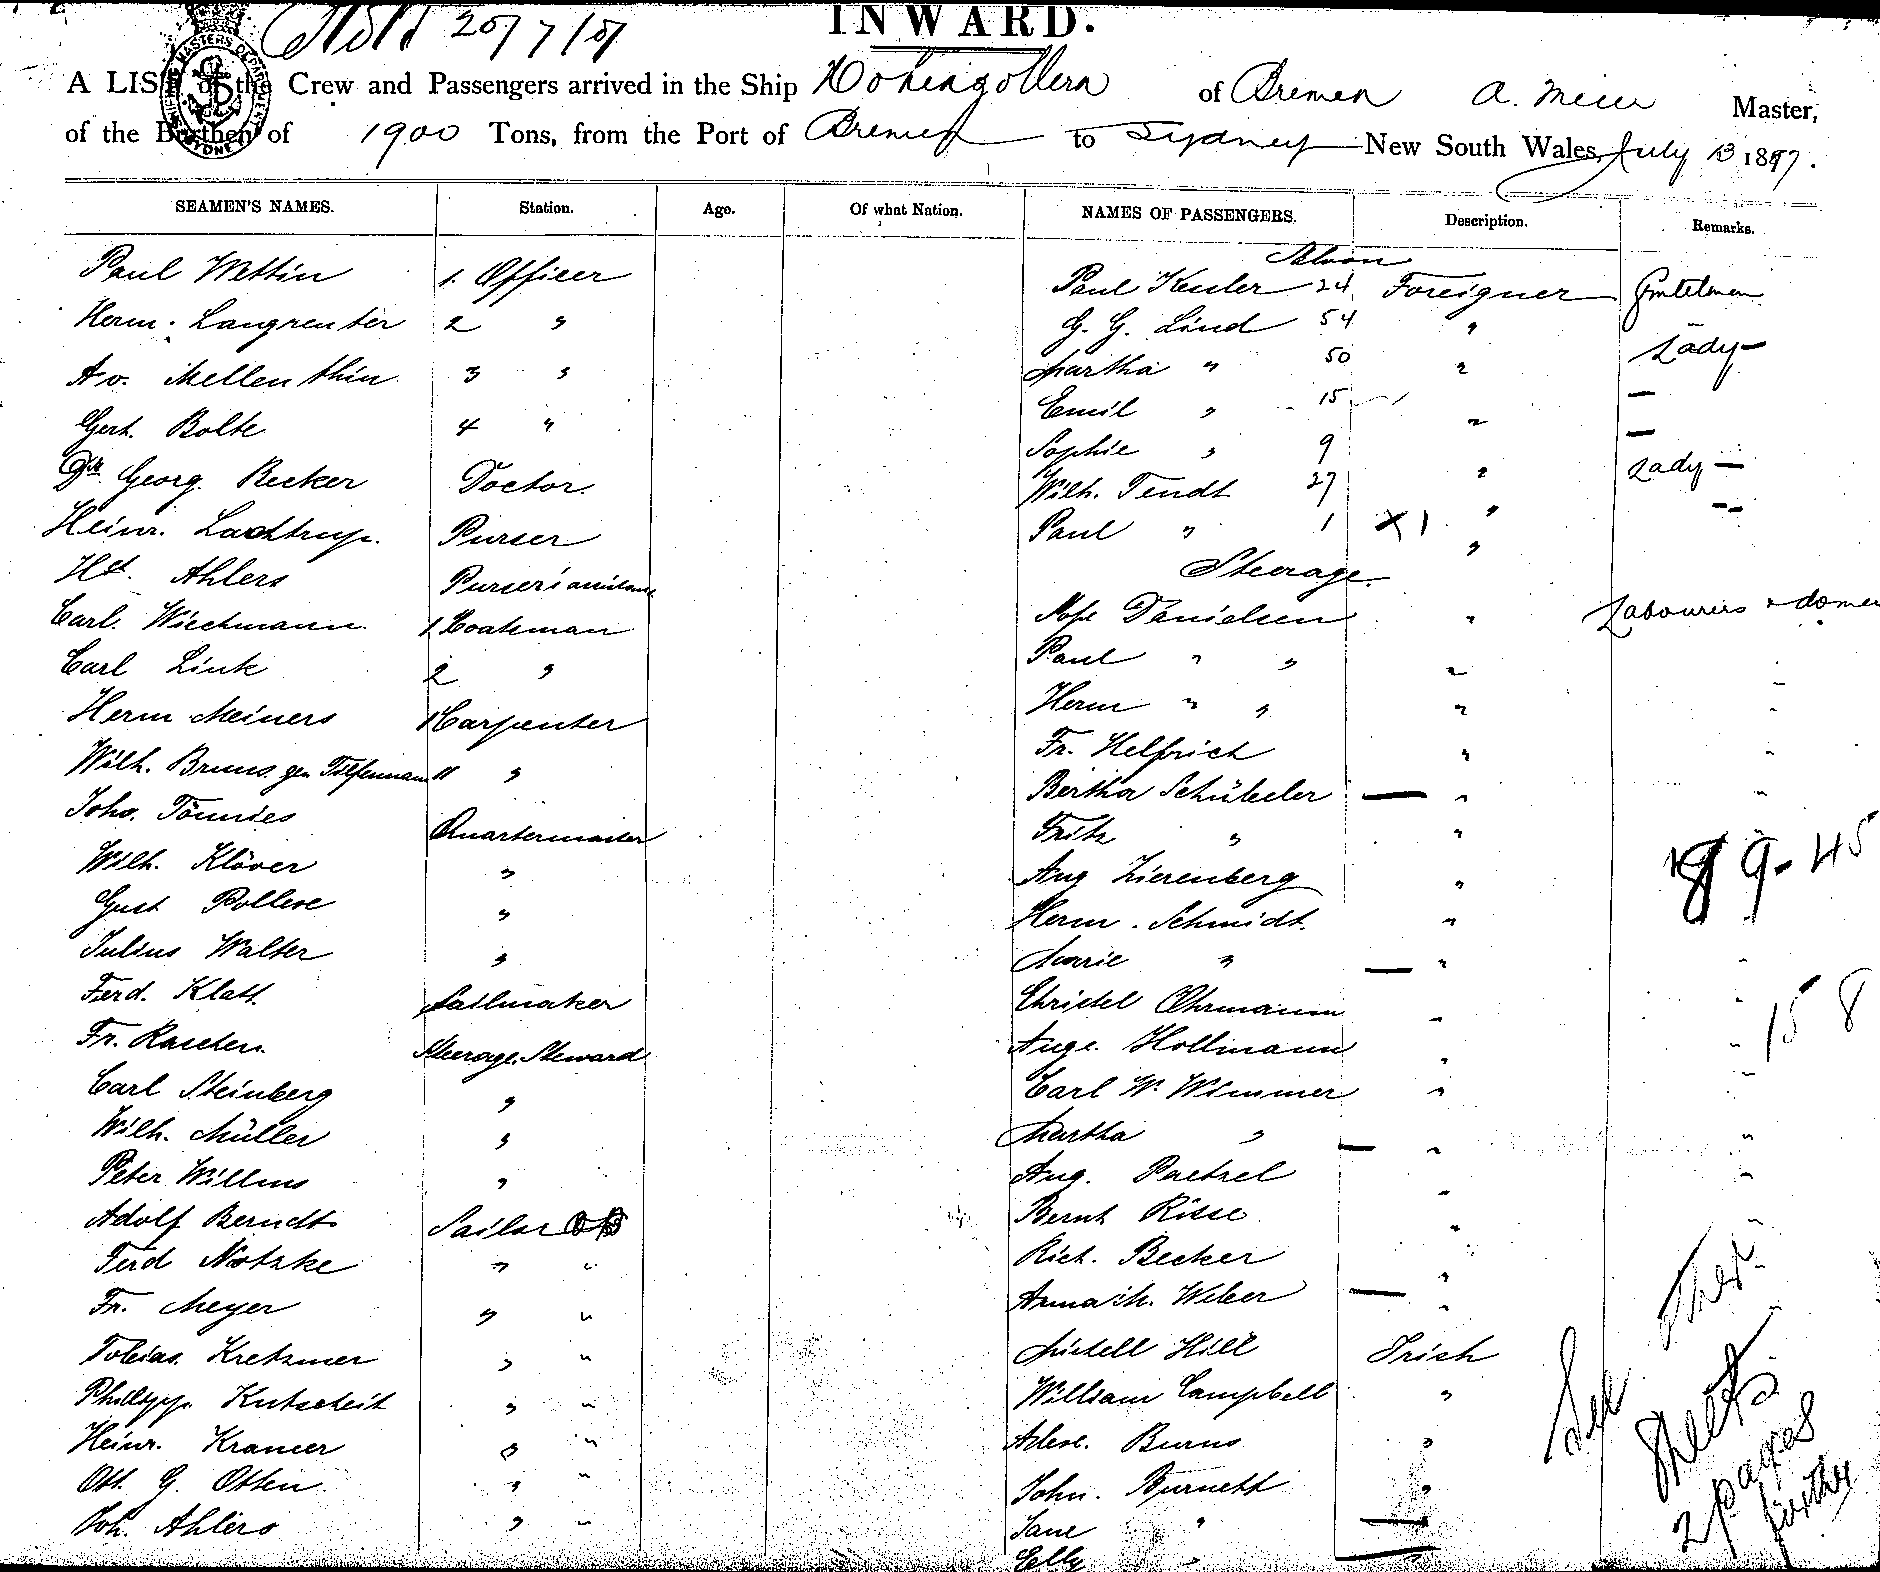 INWARD.
20/7/97
A LIST of the Crew and Passengers arrived in the Ship Hohenzollern of Bremen A. Meier Master,
of the Burthen of 1900 Tons, from the Port of Bremen to Sydney New South Wales, July 13 1897.
SEAMEN'S NAMES. Station. Age. Of what Nation. NAMES OF PASSENGERS. Description. Remarks.
Saloon
Paul Wettin 1. Officer Paul Keuler 24 Foreigner Gentelman
Herm. Langreuter 2 " G. G. Lind 54 "
A v. Mellenthin 3 " Martha " 50 " Lady -
Gerh. Bolte 4 " Emil " 15 " -
Sophie " 9 " -
Dr. Georg. Becker Doctor. Wilh. Tendt 27 " Lady -
Heinr. Ladtrup. Purser Paul " 1 X 1 " -
Steerage
Hch. Ahlers Purser's assistant
Carl. Wiechmann 1. Boatsman Danielsen " Labourers & domes
Carl Link 2 " Paul " " "
Herm Meiners 1 Carpenter Herm " " "
Wilh. Bruns gen Tölfermann II " Fr. Helfrich "
Bertha Schübeler - "
Johs. Tönnies Quartermaster Fritz " "
Wilh. Klöver " Aug Zierenberg " 9-45
Gust Pollexe " Herm. Schmidt. "
Julius Walter " Marie " - "
Ferd. Klatt. Sailmaker Christel Ohrmann " 158
Fr. Raschen. Steerage. Steward Auge. Hollmann "
Carl Steinberg " Carl W. Wimmer "
Wilh. Müller " Martha " - "
Peter Willms " Aug. Paetzel "
Adolf Berndt Sailor Bernh Risse "
Ferd Notzke " " Rich. Becker "
Fr. Meyer " " Anna M. Weber - "
Tobias. Kretzmer " " Michell Hill Irish
Philipp. Kutscheit " " William Campbell "
Heinr. Kramer " " Alexe. Burns "
Ott. G. Otten " " John. Burnett "
Joh. Ahlers " " Jane " -
Celly " -
See
Sheets
2 pages
further